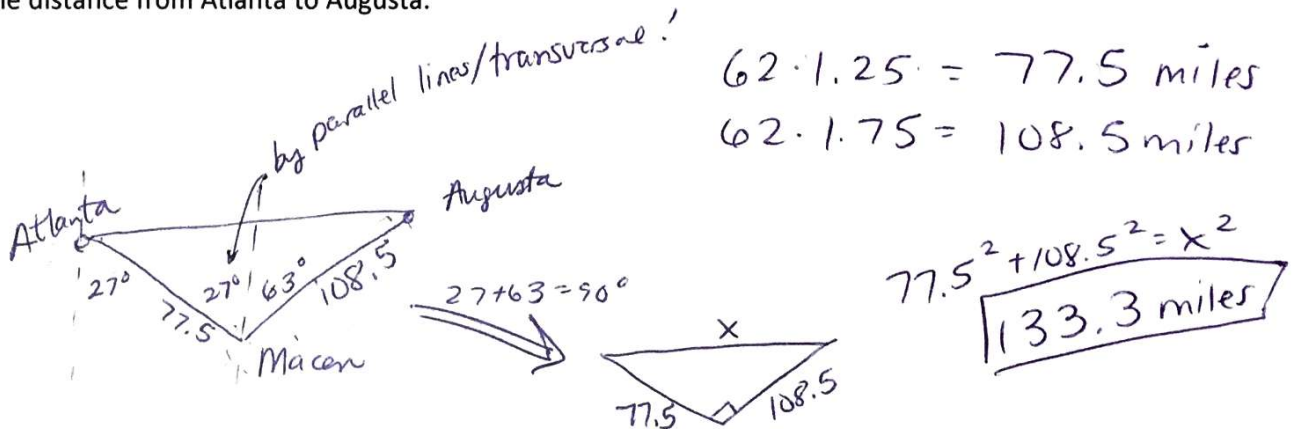 distance from Atlanta to Augusta.
by parallel lines/transversal!
62·1.25 = 77.5 miles
62·1.75 = 108.5 miles
Atlanta
Augusta
27°
27°
63°
77.5
108.5
Macon
27+63=90°
x
77.5
108.5
77.5²+108.5²=x²
133.3 miles